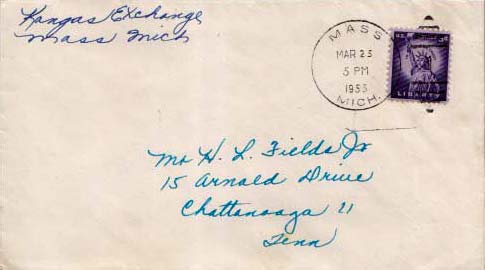 Kangas Exchange
Mass Mich
MASS
MAR 23
5 PM
1955
MICH.
LIBERTY
Mr H. L. Fields Jr
15 Arnold Drive
Chattanooga 11
Tenn